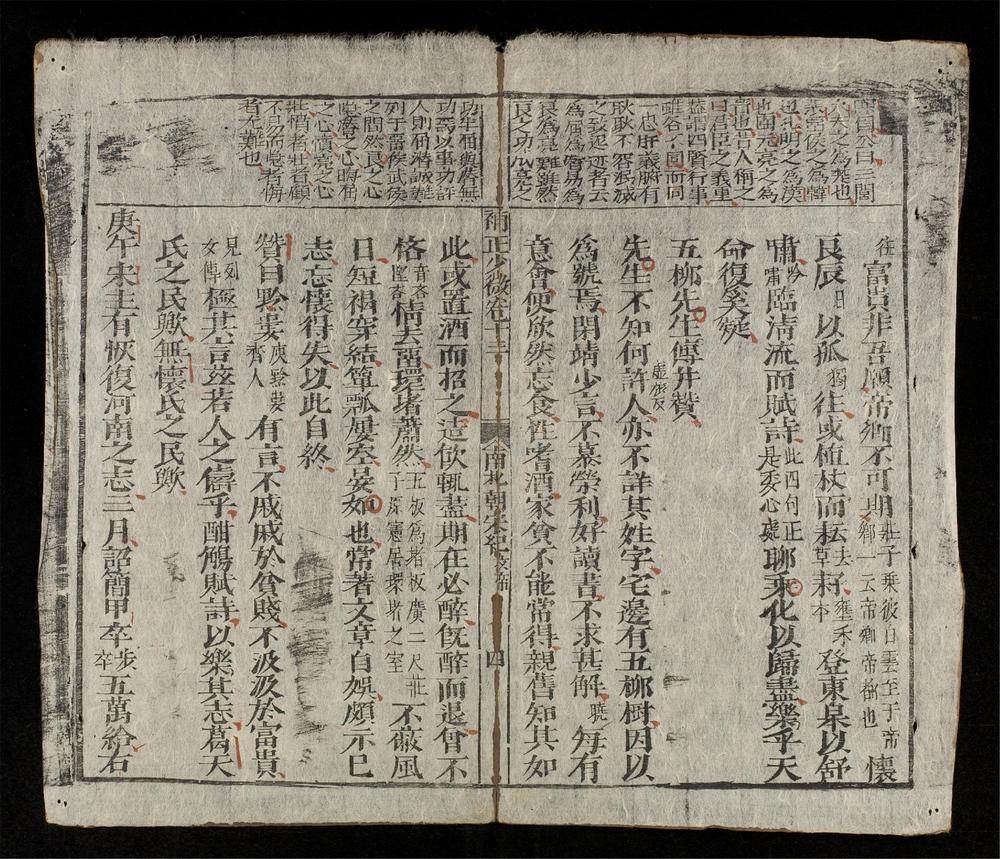 曰三閭
大夫之為楚也
侯之為韓
也孔明之為漢
也元亮之為
晉也古人稱之
曰君臣之義重
蓋謂四賢行事
雖各不同而同
一忠肝義膽有
耿耿不容泯滅
之致起迹者云
為屈為晉易為
良為亮難雖然
良之功小亮之
往富貴非吾願帝鄉不可期莊子乘彼白雲至于帝鄉一云帝鄉帝都也懷
良辰日以孤獨往或植杖而耘去草耔壅禾本登東皋以舒
嘯吟嘯臨清流而賦詩此四句正是委心處聊乘化以歸盡樂乎天
命復奚疑
五柳先生傳并贊
先生不知何許虛假反人亦不詳其姓字宅邊有五柳樹因以
為號焉閑靖少言不慕榮利好讀書不求甚解曉每有
意會便欣然忘食性嗜酒家貧不能常得親舊知其如
少微卷十三 南北朝宋紀文帝 四
功焉以事功評
人則佃潛誠難
列于留侯武侯
之間然良之心
之心慎亮之心
壯惜者壯者顧
不易而晦者悔
者不難也
此或置酒而招之造飲輒盡期在必醉既醉而退曾不
恡音吝慳吝情去畱環堵蕭然五板為堵板廣二尺莊子原憲居環堵之室不蔽風
日短褐穿結簞瓢屢空晏如也常著文章自娛頗示己
志忘懷得失以此自終
贊曰黔婁庾黔婁齊人有言不戚戚於貧賤不汲汲於富貴
見列女傳極其言茲若人之儔乎酣觴賦詩以樂其志葛天
氏之民歟無懷氏之民歟
庚午宋主有恢復河南之志三月詔簡甲卒步卒五萬給右